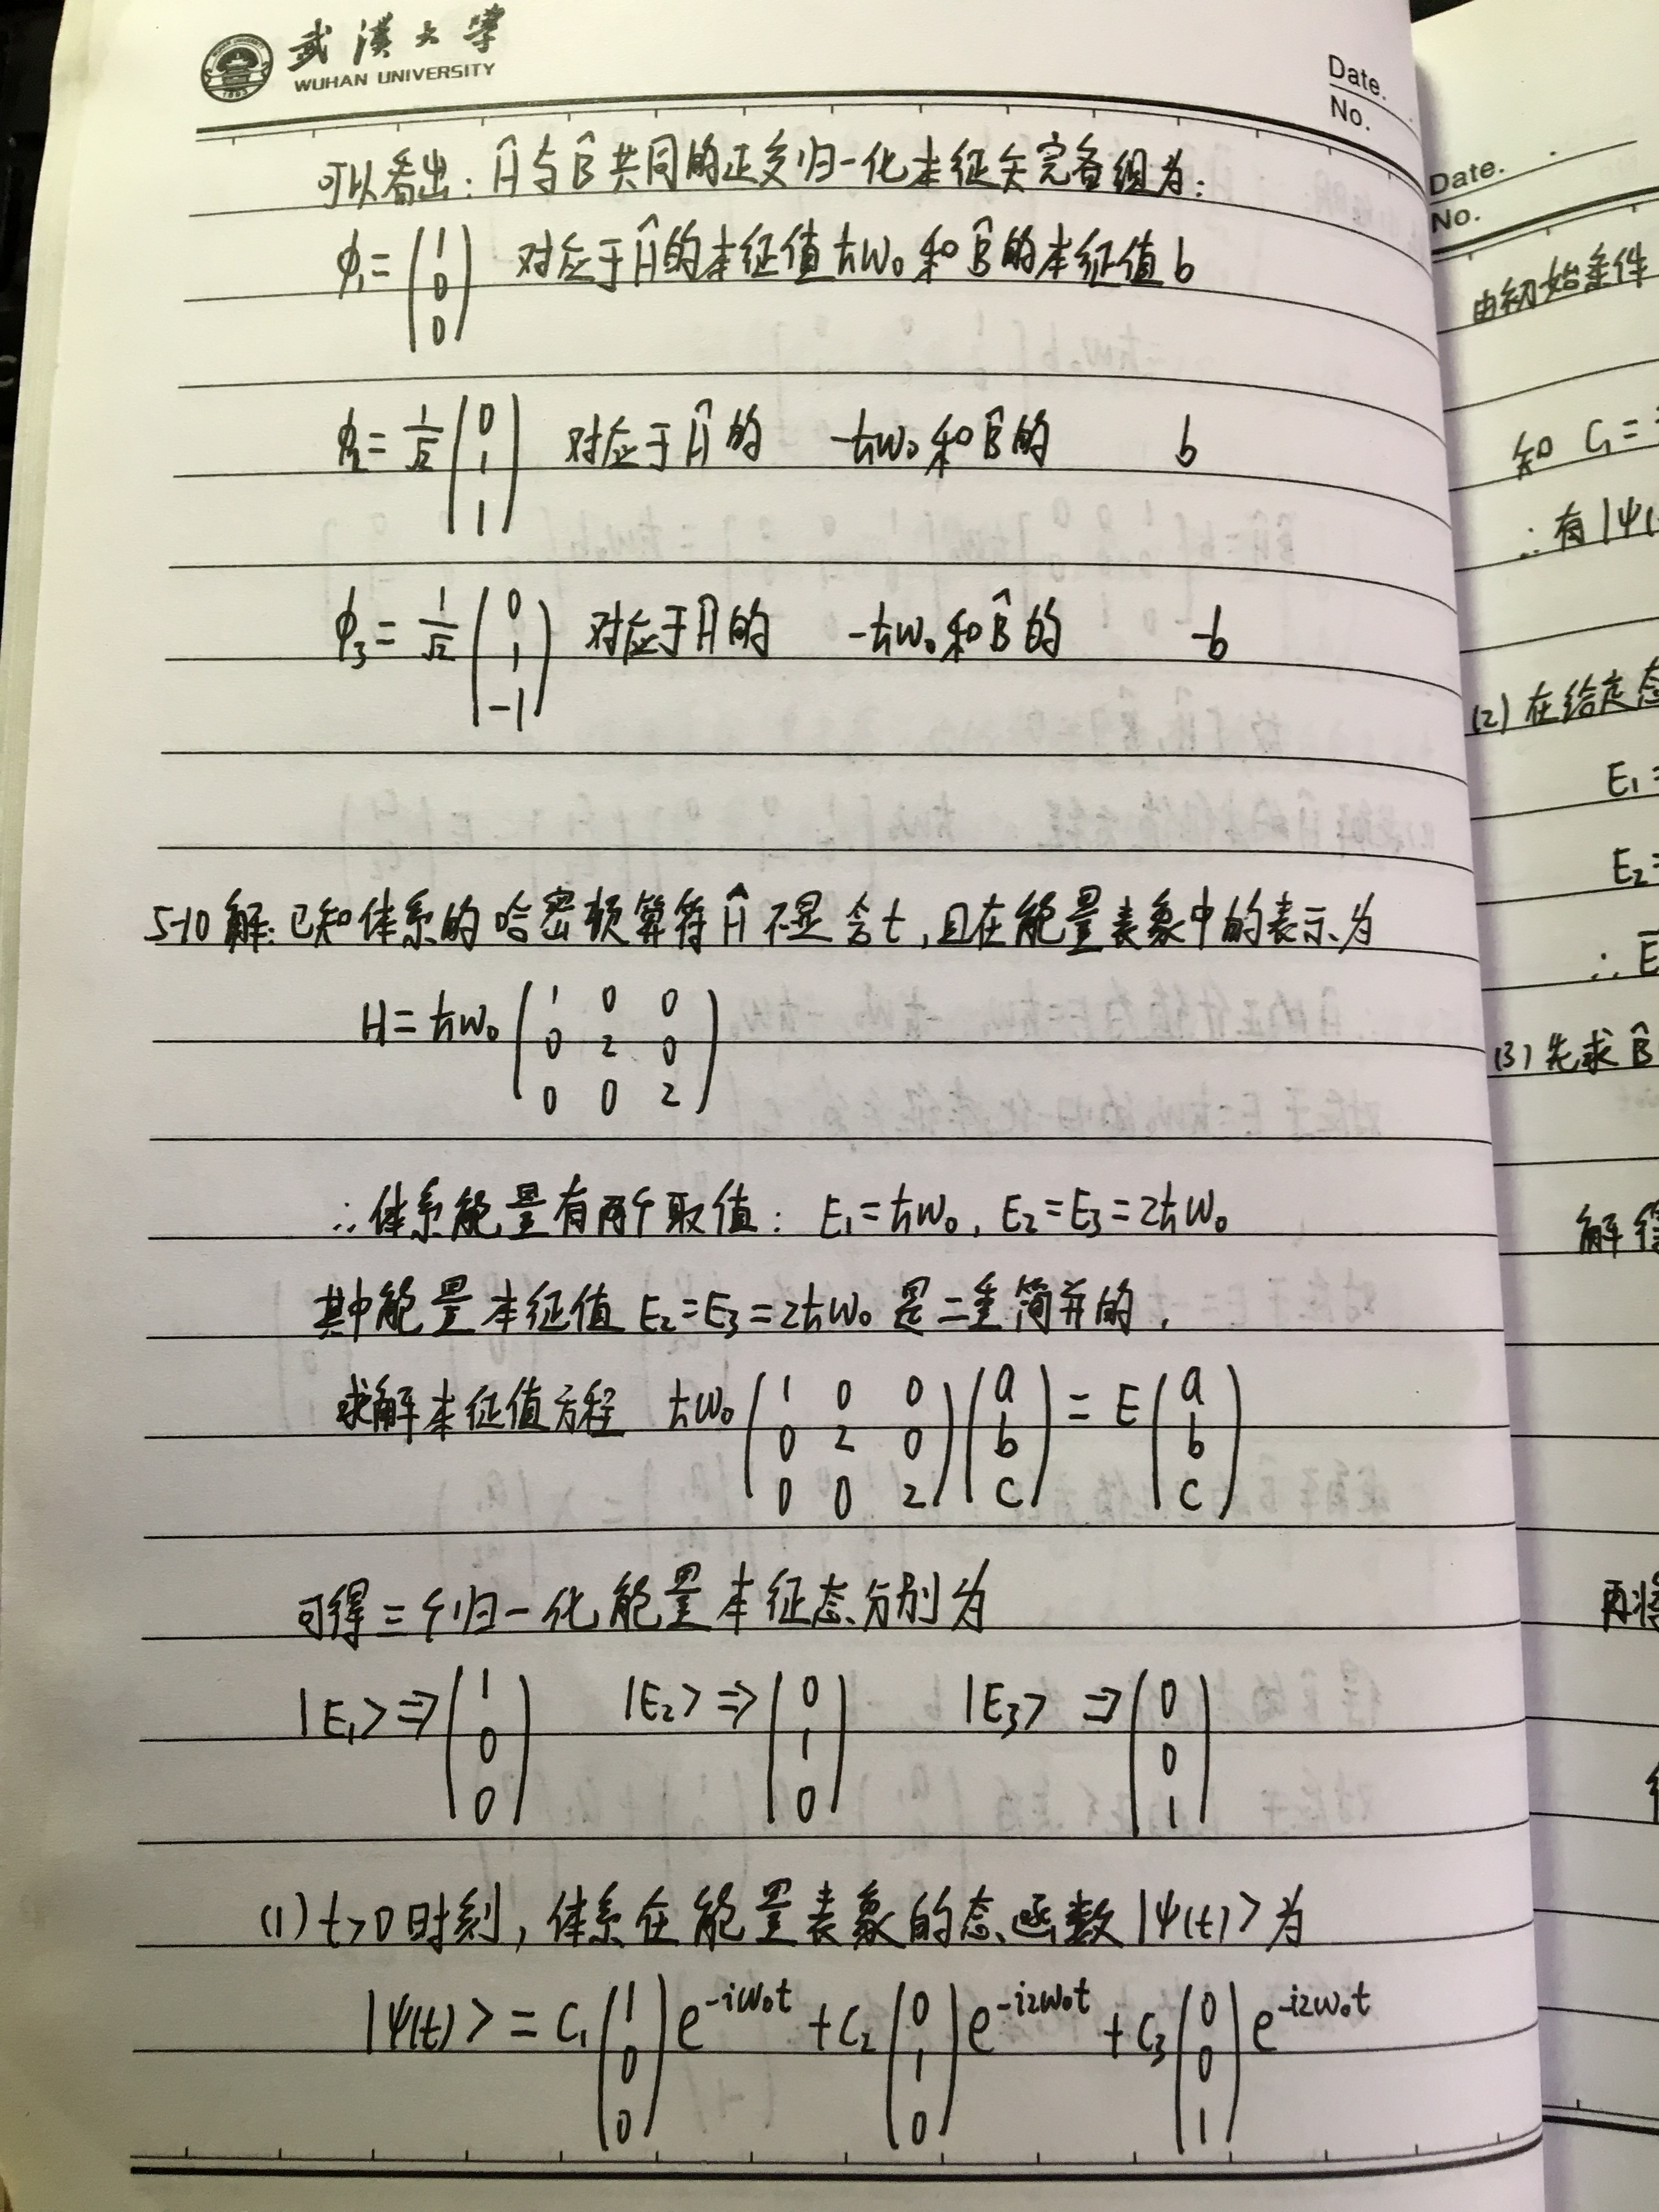 武漢大學
WUHAN UNIVERSITY
Date.
No.
可以看出: Ĥ与B̂共同的正交归一化本征矢完备组为:
ϕ₁ = (1 0 0) 对应于Ĥ的本征值ħω₀和B̂的本征值 b
ϕ₂ = 1/√2 (0 1 1) 对应于Ĥ的 -ħω₀和B̂的 b
ϕ₃ = 1/√2 (0 1 -1) 对应于Ĥ的 -ħω₀和B̂的 -b
5-10 解: 已知体系的哈密顿算符Ĥ不显含t, 且在能量表象中的表示为
H = ħω₀ (1 0 0
0 2 0
0 0 2)
∴体系能量有两个取值: E₁=ħω₀, E₂=E₃=2ħω₀
其中能量本征值 E₂=E₃=2ħω₀ 是二重简并的,
求解本征值方程 ħω₀ (1 0 0
0 2 0
0 0 2) (a b c) = E (a b c)
可得三个归一化能量本征态分别为
|E₁> ⇒ (1 0 0) |E₂> ⇒ (0 1 0) |E₃> ⇒ (0 0 1)
(1) t>0时刻, 体系在能量表象的态函数|ψ(t)>为
|ψ(t)> = C₁ (1 0 0) e^{-iω₀t} + C₂ (0 1 0) e^{-i2ω₀t} + C₃ (0 0 1) e^{-i2ω₀t}
Date.
No.
由初始条件
知 C₁=
∴有|ψ(
(2) 在给定态
E₁=
E₂=
∴ E
(3) 先求B̂
解得
再将